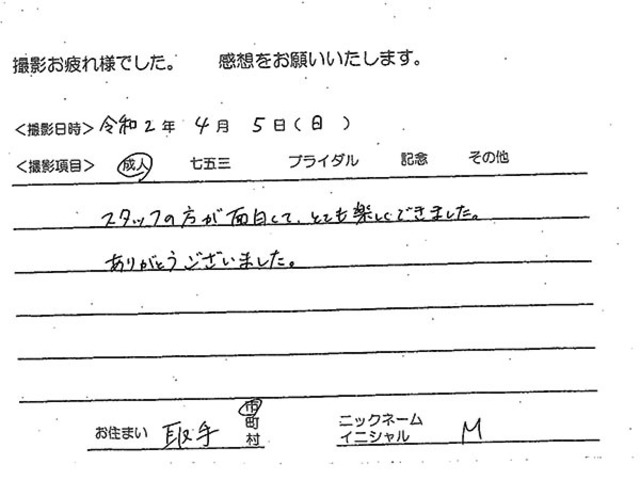 撮影お疲れ様でした。 感想をお願いいたします。
<撮影日時> 令和2年 4月 5日(日)
<撮影項目> 成人 七五三 ブライダル 記念 その他
スタッフの方が面白くて、とても楽しくできました。
ありがとうございました。
お住まい 取手 市町村 ニックネーム イニシャル M